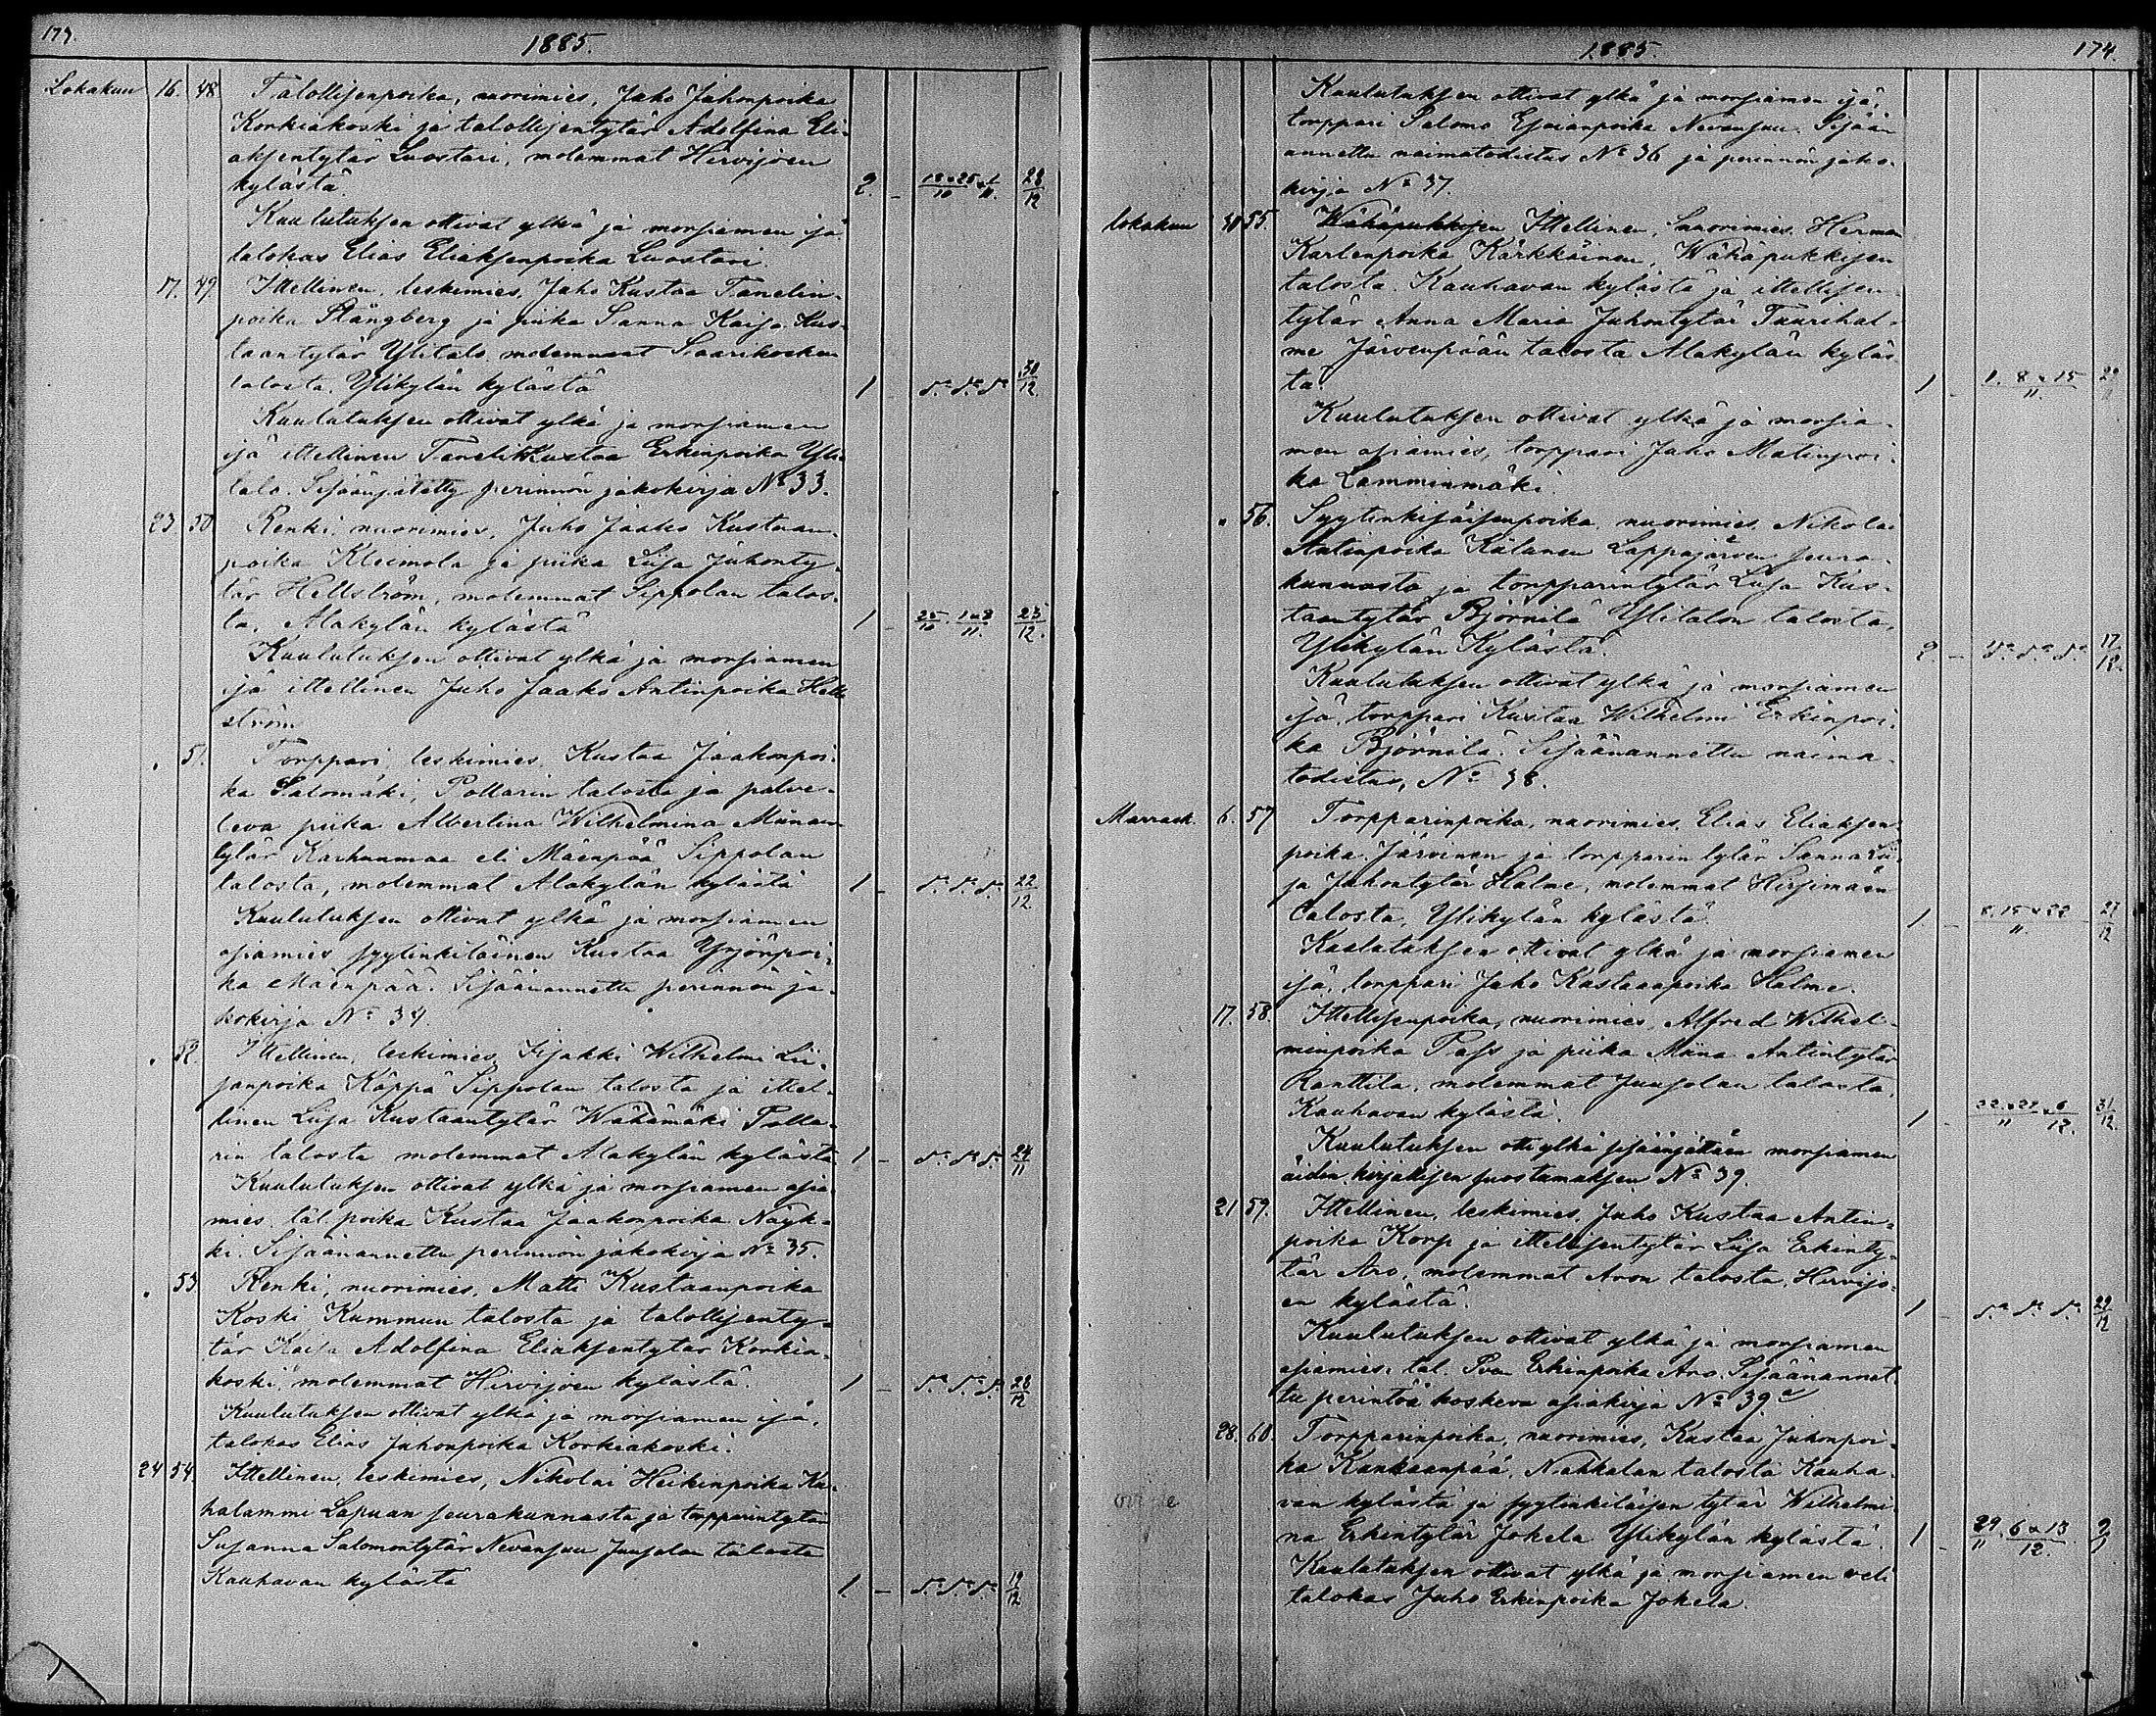 173.
1885.
Lokakuu 16. 48 Talollisenpoika, nuorimies, Juho Juhonpoika
Korkiakoski ja talollisentytär Adolfina Eli-
aksentytär Luostari, molemmat Hirvijoen
kylästä. 2. – 18 & 25/10 & 1/11. 28/12
Kuulutuksen ottivat ylkä ja morsiamen isä
talokas Elias Eliaksenpoika Luostari.
17. 49. Ittellinen, leskimies, Juho Kustaa Tanelin-
poika Stångberg ja piika Sanna Kaisa Kus-
taantytär Ylitalo molemmat Saarikosken
talosta, Ylikylän kylästä 1 – d:o d:o d:o 30/12.
Kuulutuksen ottivat ylkä ja morsiamen
isä ittellinen Taneli Kustaa Erkinpoika Yli-
talo. Sisäänjätetty perinnön jakokirja No 33.
23. 50 Renki, nuorimies, Juho Jaako Kustaan-
poika Kleimola ja piika Liisa Juhonty-
tär Hellström, molemmat Sippolan talos-
ta, Alakylän kylästä 1 – 25/10. 1 & 8/11. 25/12.
Kuulutuksen ottivat ylkä ja morsiamen
isä ittellinen Juho Jaako Antinpoika Hell-
ström
. 51. Torppari, leskimies, Kustaa Jaakonpoi-
ka Salomäki, Pollarin talosta ja palve-
leva piika Albertina Wilhelmina Miinan-
tytär Karhunmaa eli Mäenpää Sippolan
talosta, molemmat Alakylän kylästä 1 – d:o d:o d:o 22/12.
Kuulutuksen ottivat ylkä ja morsiamen
asiamies syytinkiläinen Kustaa Yrjönpoi-
ka Mäenpää. Sisäänannettu perinnön ja-
kokirja No 34.
. 52. Ittellinen, leskimies, Isjakki Wilhelmi Lii-
sanpoika Käppä Sippolan talosta ja ittel-
linen Liisa Kustaantytär Wähämäki Polla-
rin talosta molemmat Alakylän kylästä 1 – d:o d:o d:o 24/11
Kuulutuksen ottivat ylkä ja morsiamen asia-
mies tal. poika Kustaa Jaakonpoika Näyk-
ki. Sisäänannettu perinnön jakokirja No 35.
. 53. Renki, nuorimies, Matti Kustaanpoika
Koski Kummun talosta ja talollisenty-
tär Kaisa Adolfina Eliaksentytär Korkia-
koski, molemmat Hirvijoen kylästä. 1 – d:o d:o d:o 28/12
Kuulutuksen ottivat ylkä ja morsiamen isä,
talokas Elias Juhonpoika Korkiakoski.
24 54 Ittellinen, leskimies, Nikolai Heikinpoika Ka-
halammi Lapuan seurakunnasta ja torpparintytär
Susanna Salomontytär Nevansuu Juusolan talosta
Kauhavan kylästä 1 – d:o d:o d:o 19/12
1885.
174.
Kuulutuksen ottivat ylkä ja morsiamen isä,
torppari Salomo Esaianpoika Nevansuu. Sisään
annettu naimatodistus No 36 ja perinnön jako-
kirja No 37.
Lokakuu 30 55. Wähäpukkisen Ittellinen, nuorimies, Herman
Karlenpoika Kärkkäinen, Wähäpukkisen
talosta, Kauhavan kylästä ja ittellisen-
tytär Anna Maria Juhontytär Tuurihal-
me Järvenpään talosta Alakylän kyläs-
tä. 1 – 1. 8 & 15/11.
Kuulutuksen ottivat ylkä ja morsia-
men asiamies, torppari Juho Matinpoi-
ka Lamminmäki.
" 56. Syytinkiläisenpoika, nuorimies, Nikolai
Antinpoika Kälanen Lappajärven seura-
kunnasta ja torpparintytär Liisa Kus-
taantytär Björnilä Ylitalon talosta,
Ylikylän Kylästä. 2 – d:o d:o d:o 17/12.
Kuulutuksen ottivat ylkä ja morsiamen
isä, torppari Kustaa Wilhelmi Erkinpoi-
ka Björnilä. Sisäänannettu naima-
todistus, No 38.
Marrask. 6. 57 Torpparinpoika, nuorimies, Elias Eliaksen-
poika Järvinen ja torpparintytär Sanna Lii-
sa Juhontytär Halme, molemmat Hirsimäen
talosta, Ylikylän kylästä. 1. – 8, 15 & 22/11. 27/12
Kuulutuksen ottivat ylkä ja morsiamen
isä, torppari Juho Kustaanpoika Halme.
17. 58. Ittellisenpoika, nuorimies, Alfred Wilhel-
minpoika Pass ja piika Miina Antintytär
Renttila, molemmat Juusolan talosta,
Kauhavan kylästä. 1 – 22 & 29/11 & 6/12. 31/12.
Kuulutuksen otti ylkä sisäänjättäen morsiamen
äidin kirjallisen suostumuksen No 39.
21 59. Ittellinen, leskimies, Juho Kustaa Antin-
poika Korp ja ittellisentytär Liisa Erkinty-
tär Aro, molemmat Aron talosta, Hirvijo-
en kylästä. 1 – d:o d:o d:o 29/12
Kuulutuksen ottivat ylkä ja morsiamen
asiamies tal. Erkinpoika Aro. Sisäänannet-
tu perintöä koskeva asiakirja No 39 a
28. 60. Torpparinpoika, nuorimies, Kustaa Juhonpoi-
ka Kankaanpää, Nahkalan talosta Kauha-
van kylästä ja syytinkiläisen tytär Wilhelmi-
na Erkintytär Jokela Ylikylän kylästä. 1 – 29/11, 6 & 13/12.
Kuulutuksen ottivat ylkä ja morsiamen veli
talokas Juho Erkinpoika Jokela.